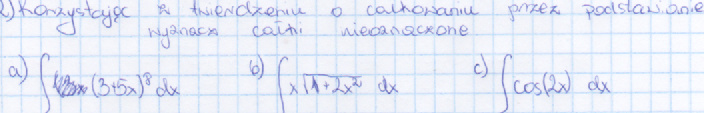 2) Korzystając z twierdzenia o całkowaniu przez podstawianie
wyznacz całki nieoznaczone.
a) ∫ (3+5x)⁸ dx b) ∫ x√(1+2x²) dx c) ∫ cos(2x) dx